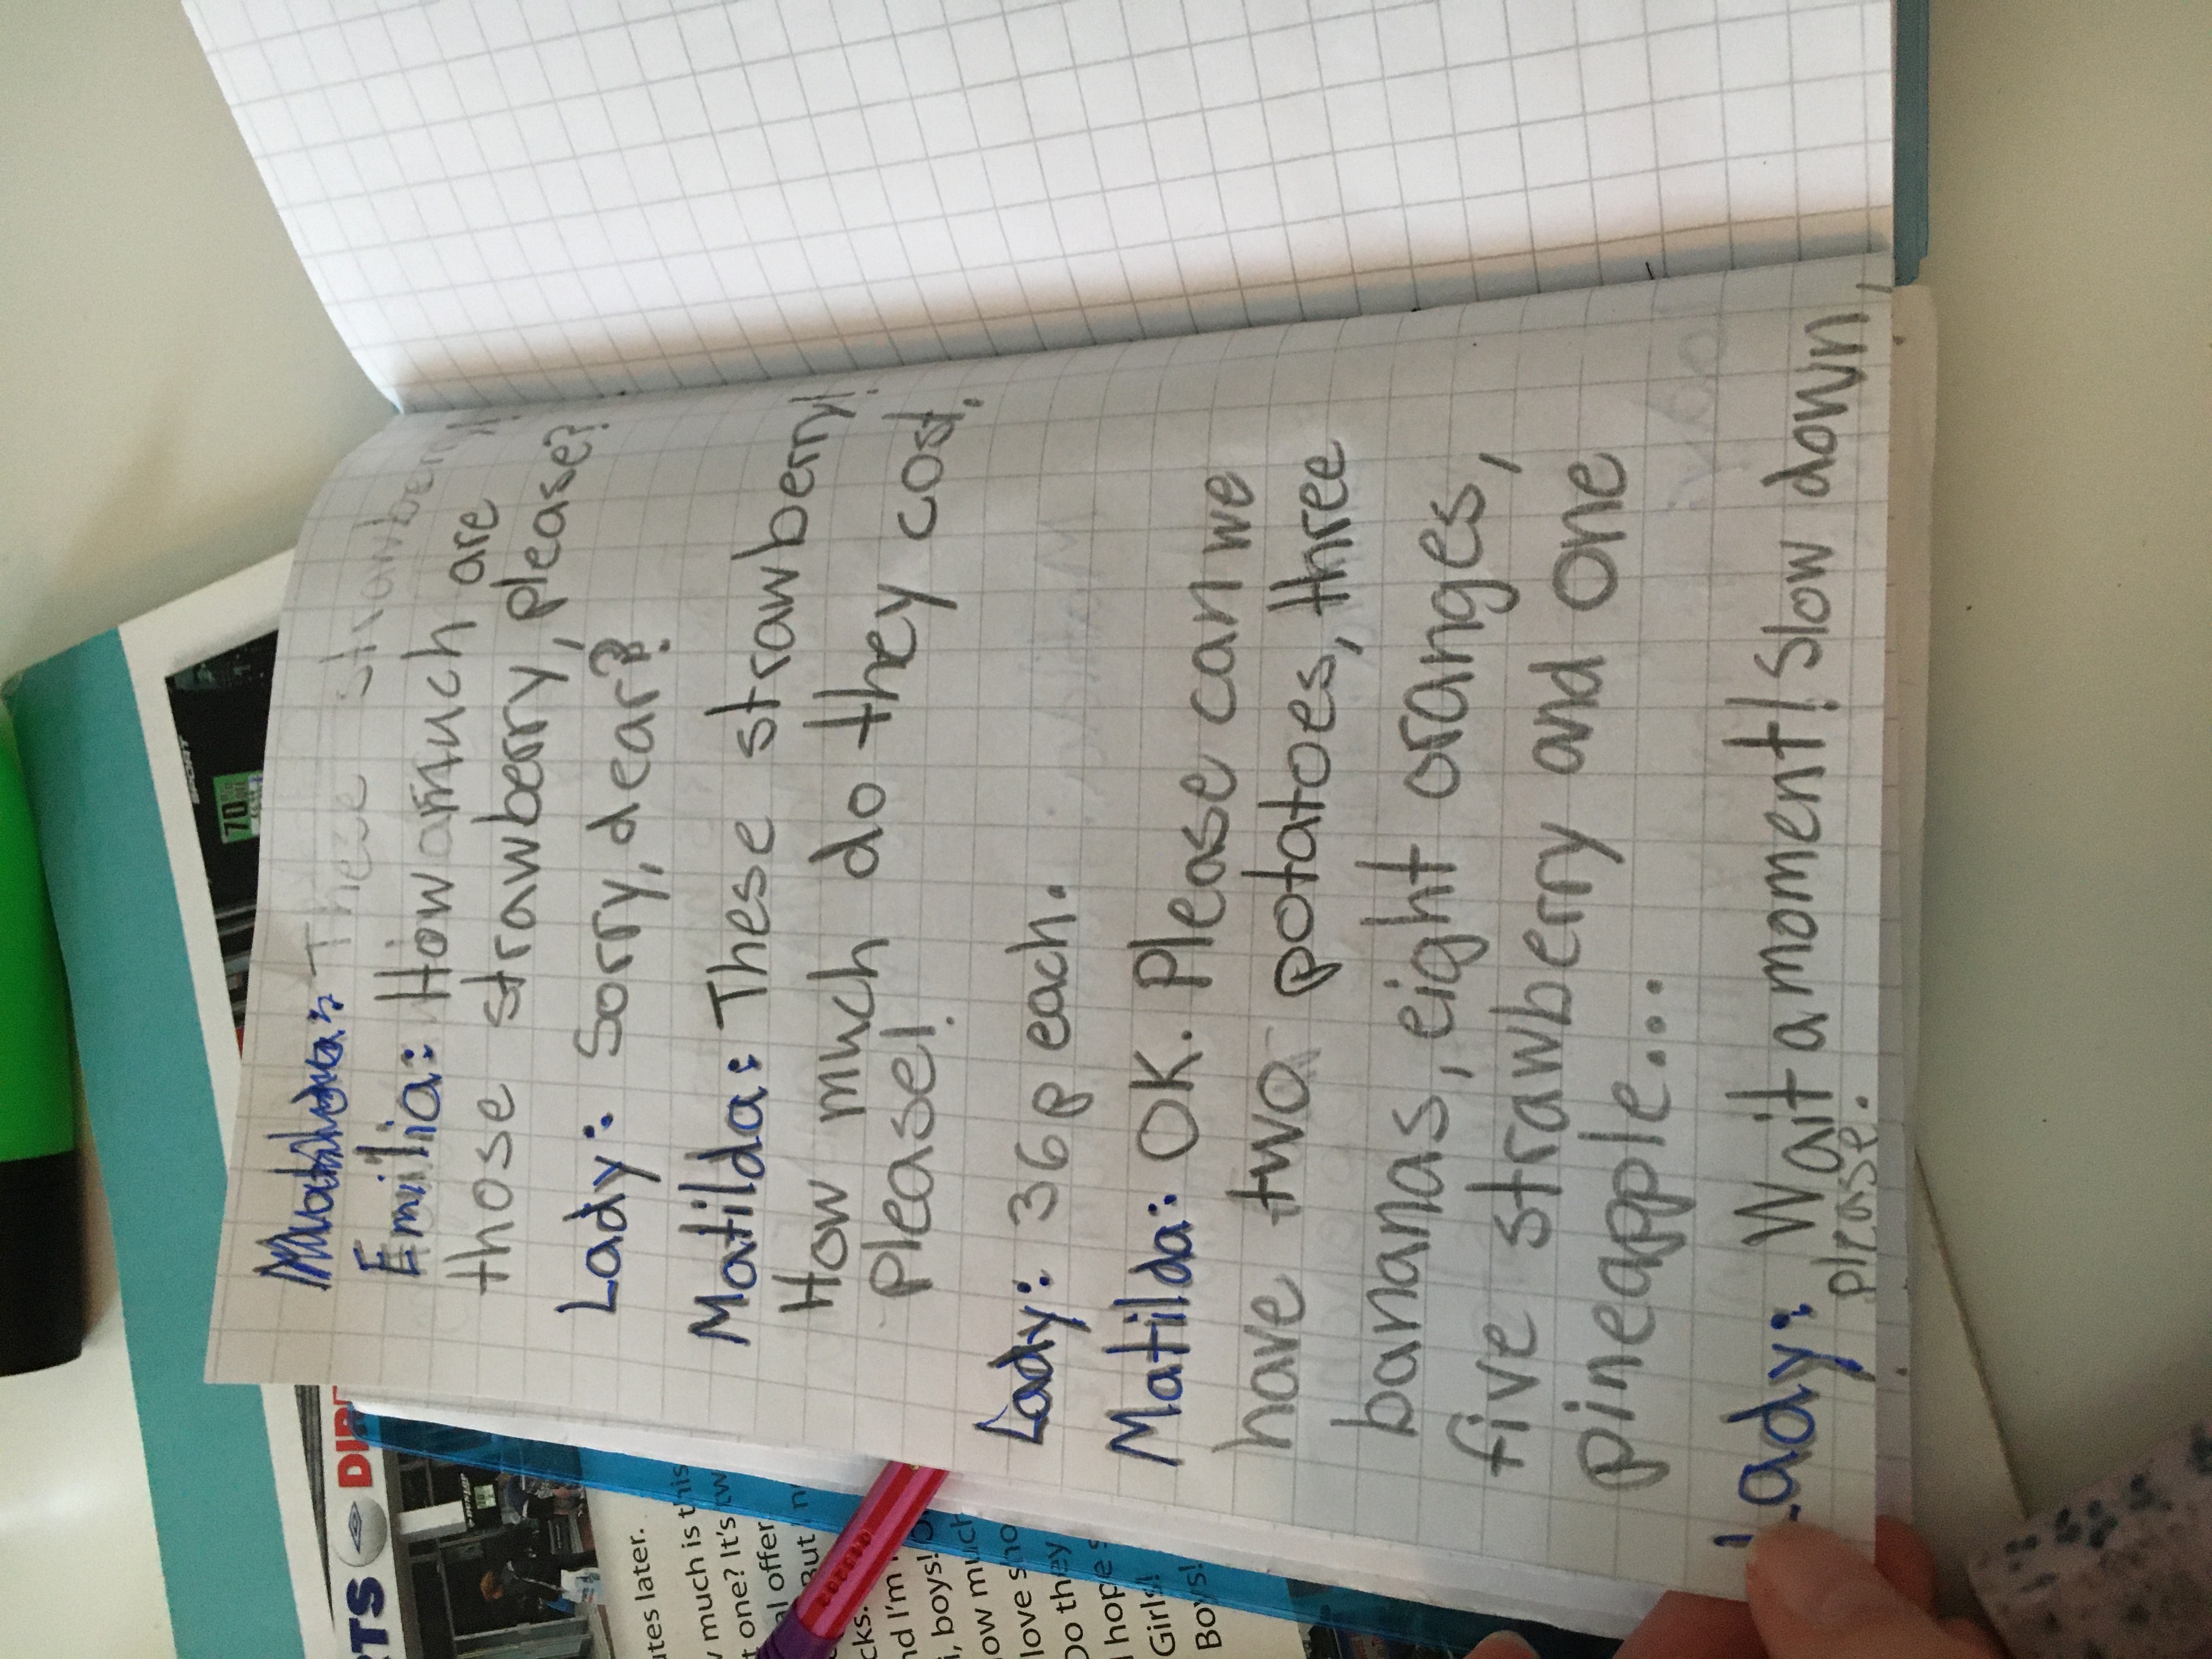 These strawberry!
Emilia: How much are
those strawberry, please?
Lady: Sorry, dear?
Matilda: These strawberry!
How much do they cost,
please!
Lady: 36p each.
Matilda: OK. Please can we
have two potatoes, three
bananas, eight oranges,
five strawberry and one
pineapple....
Lady: Wait a moment! Slow down,
please.
70
RTS DIR
utes later.
much is this
one? It's tw
al offer
But
cks.
nd I'm
i, boys!
ow much
love sho
Do they
hope
Girls!
Boys!